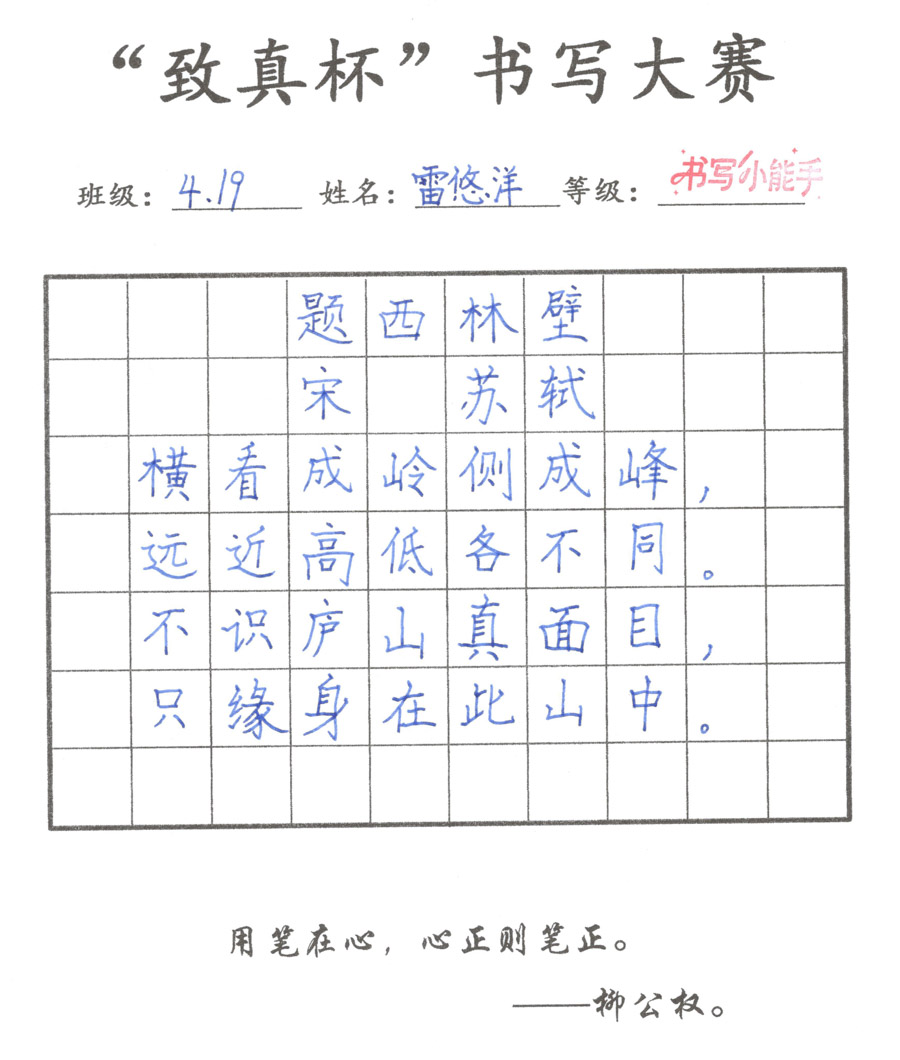 “致真杯”书写大赛
班级：4.19 姓名：雷悠洋 等级：书写小能手
题西林壁
宋 苏轼
横看成岭侧成峰，
远近高低各不同。
不识庐山真面目，
只缘身在此山中。
用笔在心，心正则笔正。
——柳公权。